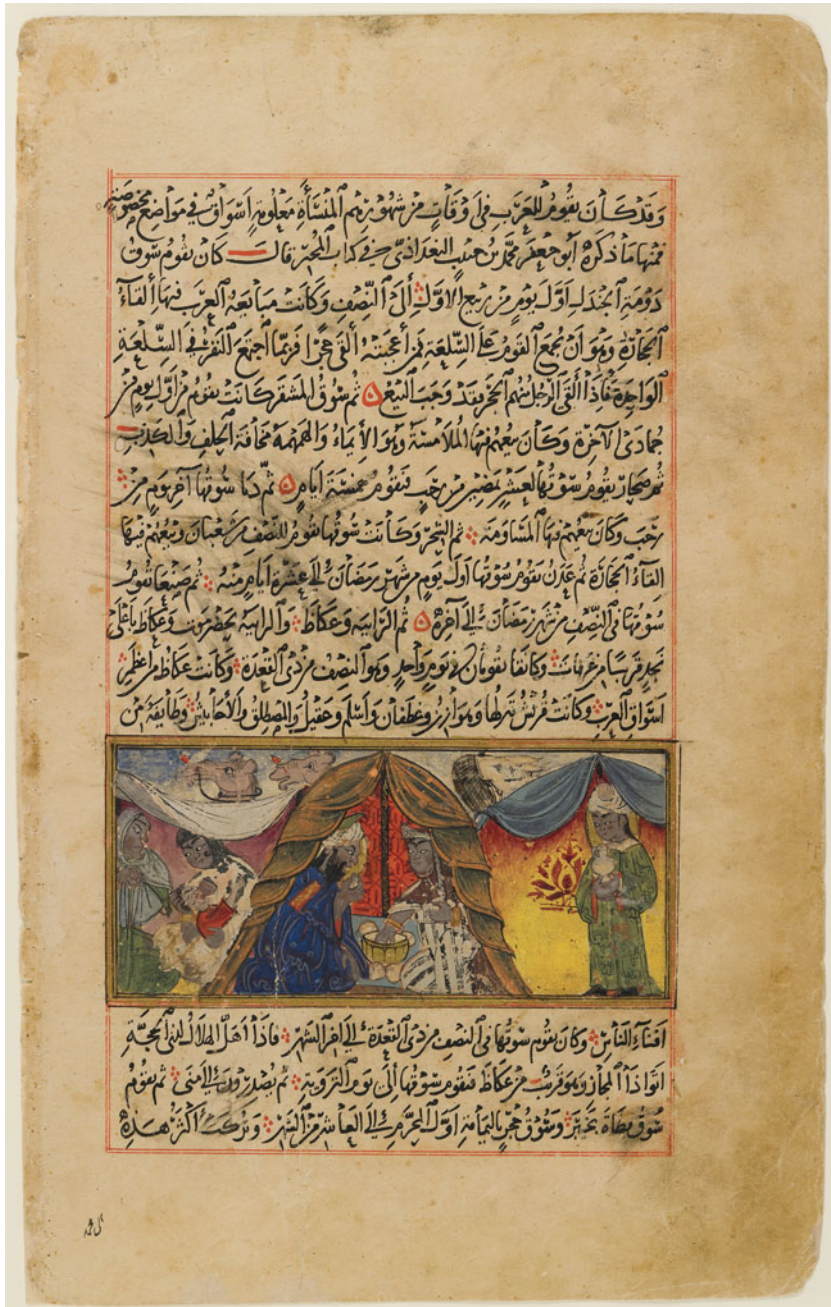 وقد كان يقوم للعرب في اوقات من شهورهم المنسأة معلومة اسواق في مواضع مخصوصة
فمنها ما ذكره أبو جعفر محمد بن حبيب البغداذي في كتاب المحبر قال كان يقوم سوق
دومة الجندل اول يوم من ربيع الاول إلى النصف وكانت مبايعة العرب فيها إلقاء
الحجارة وهو أن يجمع القوم على السلعة فمن أعجبته ألقى حجرا فربما اجتمع النفر في السلعة
الواحدة فاذا ألقى الرجل منهم الحجر فقد وجب البيع ثم سوق المشقر كانت يقوم من أول يوم من
جمادى الآخرة وكان بيعهم فيها الملامسة وهو الأيماء والهمهمة مخافة الحلف والكذب
ثم صحار يقوم سوقها لعشر يمضين من رجب فتقوم خمسة أيام ثم دبا سوقها آخر يوم من
رجب وكان بيعهم فيها المساومة ثم الشحر وكانت سوقها تقوم للنصف من شعبان وبيعهم فيها
القاء الحجارة ثم عدن تقوم سوقها أول يوم من شهر رمضان إلى عشرة ايام منه ثم صنعا تقوم
سوقها في النصف من شهر رمضان إلى آخره ثم الرابية وعكاظ والرابية بحضرموت وعكاظ باعلى
نجد قريبا من عرفات وكانتا يقومان في يوم واحد وهو النصف من ذي القعدة وكانت عكاظ من اعظم
اسواق العرب وكانت قريش تنزلها وهوازن وغطفان واسلم وعقيل والمصطلق والأحابيش وطايفة من
افناء الناس وكان يقوم سوقها في النصف من ذي القعدة إلى اخر الشهر فاذا أهل الهلال لذي الحجة
اتوا ذا المجاز وهو قريب من عكاظ فتقوم سوقها إلى يوم التروية ثم يصدرون إلى منى ثم يقوم
سوق نطاة بخيبر وسوق حجر باليمامة أول المحرم إلى العاشر من الشهر وتركت أكثر هذه